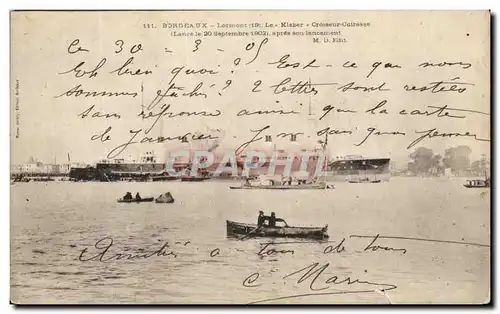 111. BORDEAUX - Lormont (19). Le « Kleber » Croiseur-Cuirassé
(Lancé le 20 Septembre 1902), après son lancement
M. D. Edit.
Ce 30 - 3 - 05
Eh bien quoi ? Est-ce que nous
sommes fâchés ? 2 lettres sont restées
sans réponse ainsi que la carte
de Janvier Je ne sais que penser
CARTE PRECIEUSE
Amitiés à tous de tous
C. Marin